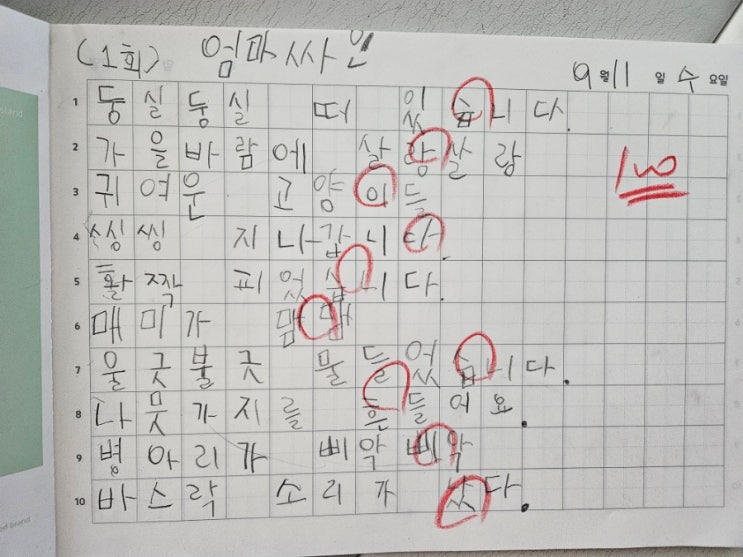 (1회) 엄마싸인
9월 11일 수요일
1 둥실둥실 떠 있습니다.
2 가을바람에 살랑살랑
3 귀여운 고양이들
4 씽씽 지나갑니다.
5 활짝 피었습니다.
6 매미가 맴맴
7 울긋불긋 물들었습니다.
8 나뭇가지를 흔들어요.
9 병아리가 삐악삐악
10 바스락 소리가 났다.
100